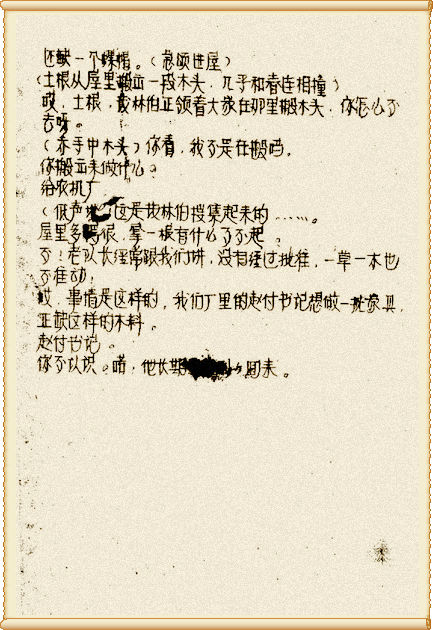 还缺一个螺帽。(急须进屋)
(土根从屋里搬出一段木头,几乎和春连相撞)
哎,土根,茂林伯正领着大家在那里搬木头,你怎么不
去呀。
(示手中木头)你看,我不是在搬吗。
你搬出来做什么。
给农机厂
(低声 这是茂林伯搜集起来的……。
屋里多 很,拿一根有什么了不起。
不!老队长经常跟我们讲,没有经过批准,一草一木也
不准动,
哎,事情是这样的,我们厂里的赵付书记想做一批家具,
正缺这样的木料。
赵付书记。
你不认识。喏,他长期 回来。